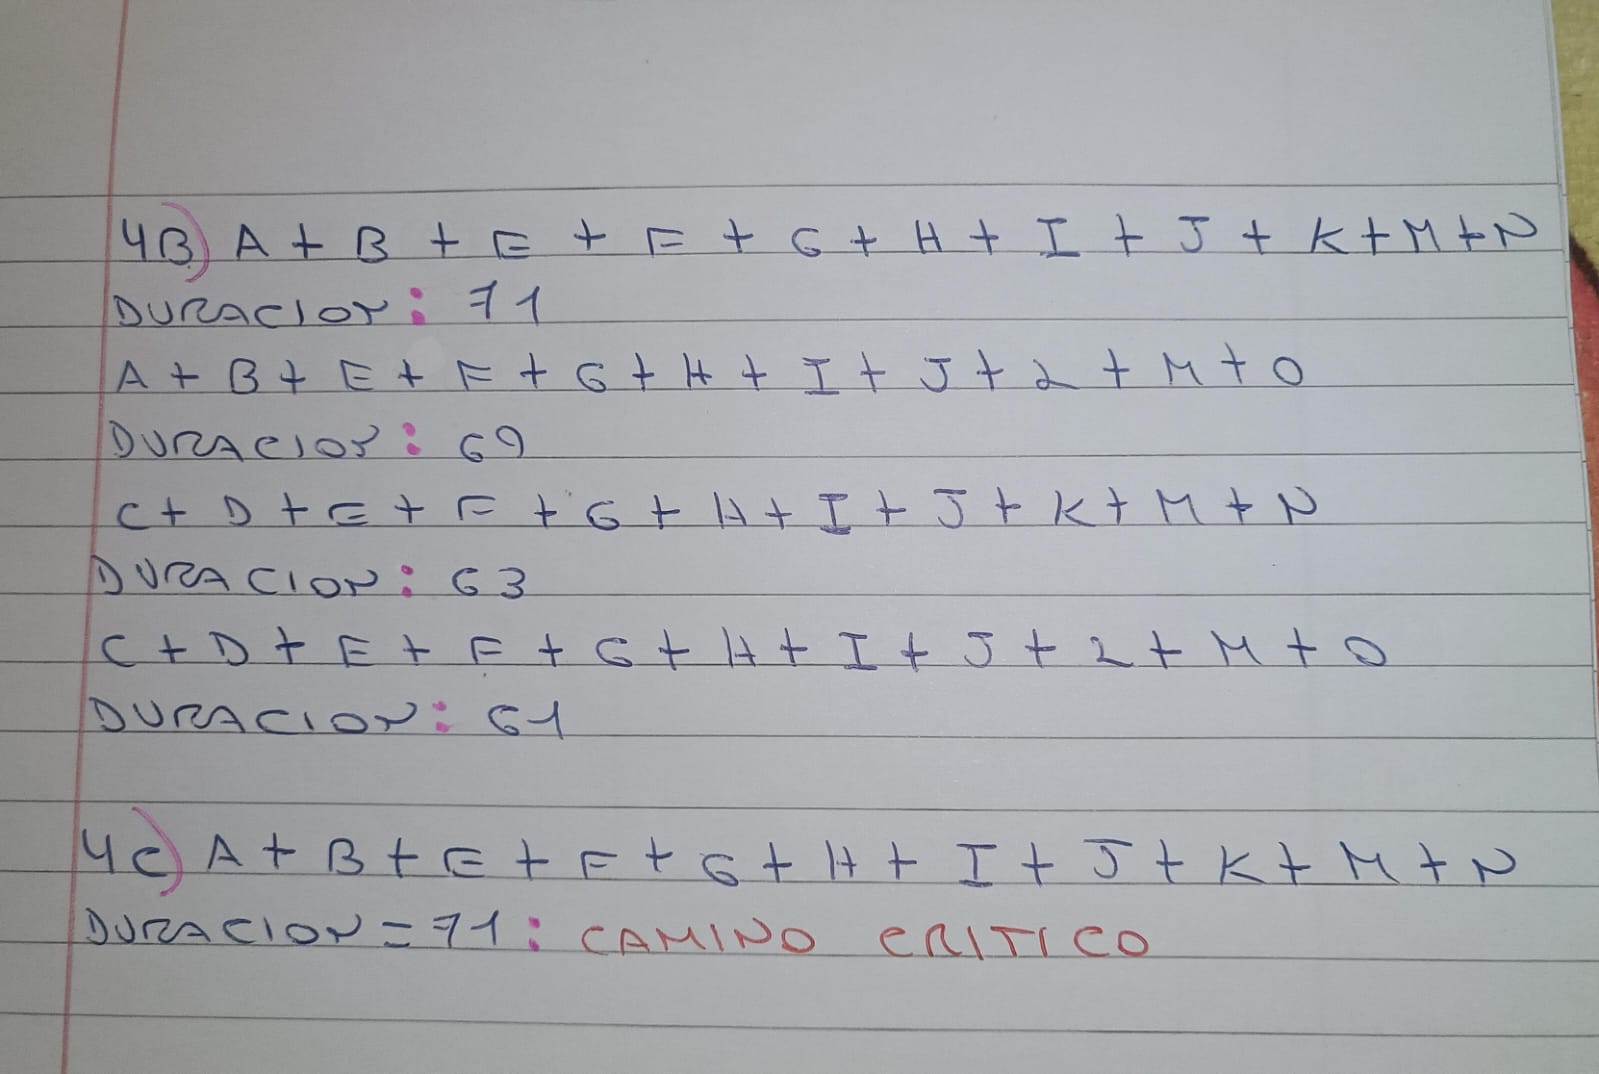 4B) A + B + E + F + G + H + I + J + K + M + N
DURACION: 71
A + B + E + F + G + H + I + J + L + M + O
DURACION: 69
C + D + E + F + G + H + I + J + K + M + N
DURACION: 63
C + D + E + F + G + H + I + J + L + M + O
DURACION: 61
4C) A + B + E + F + G + H + I + J + K + M + N
DURACION = 71: CAMINO CRITICO